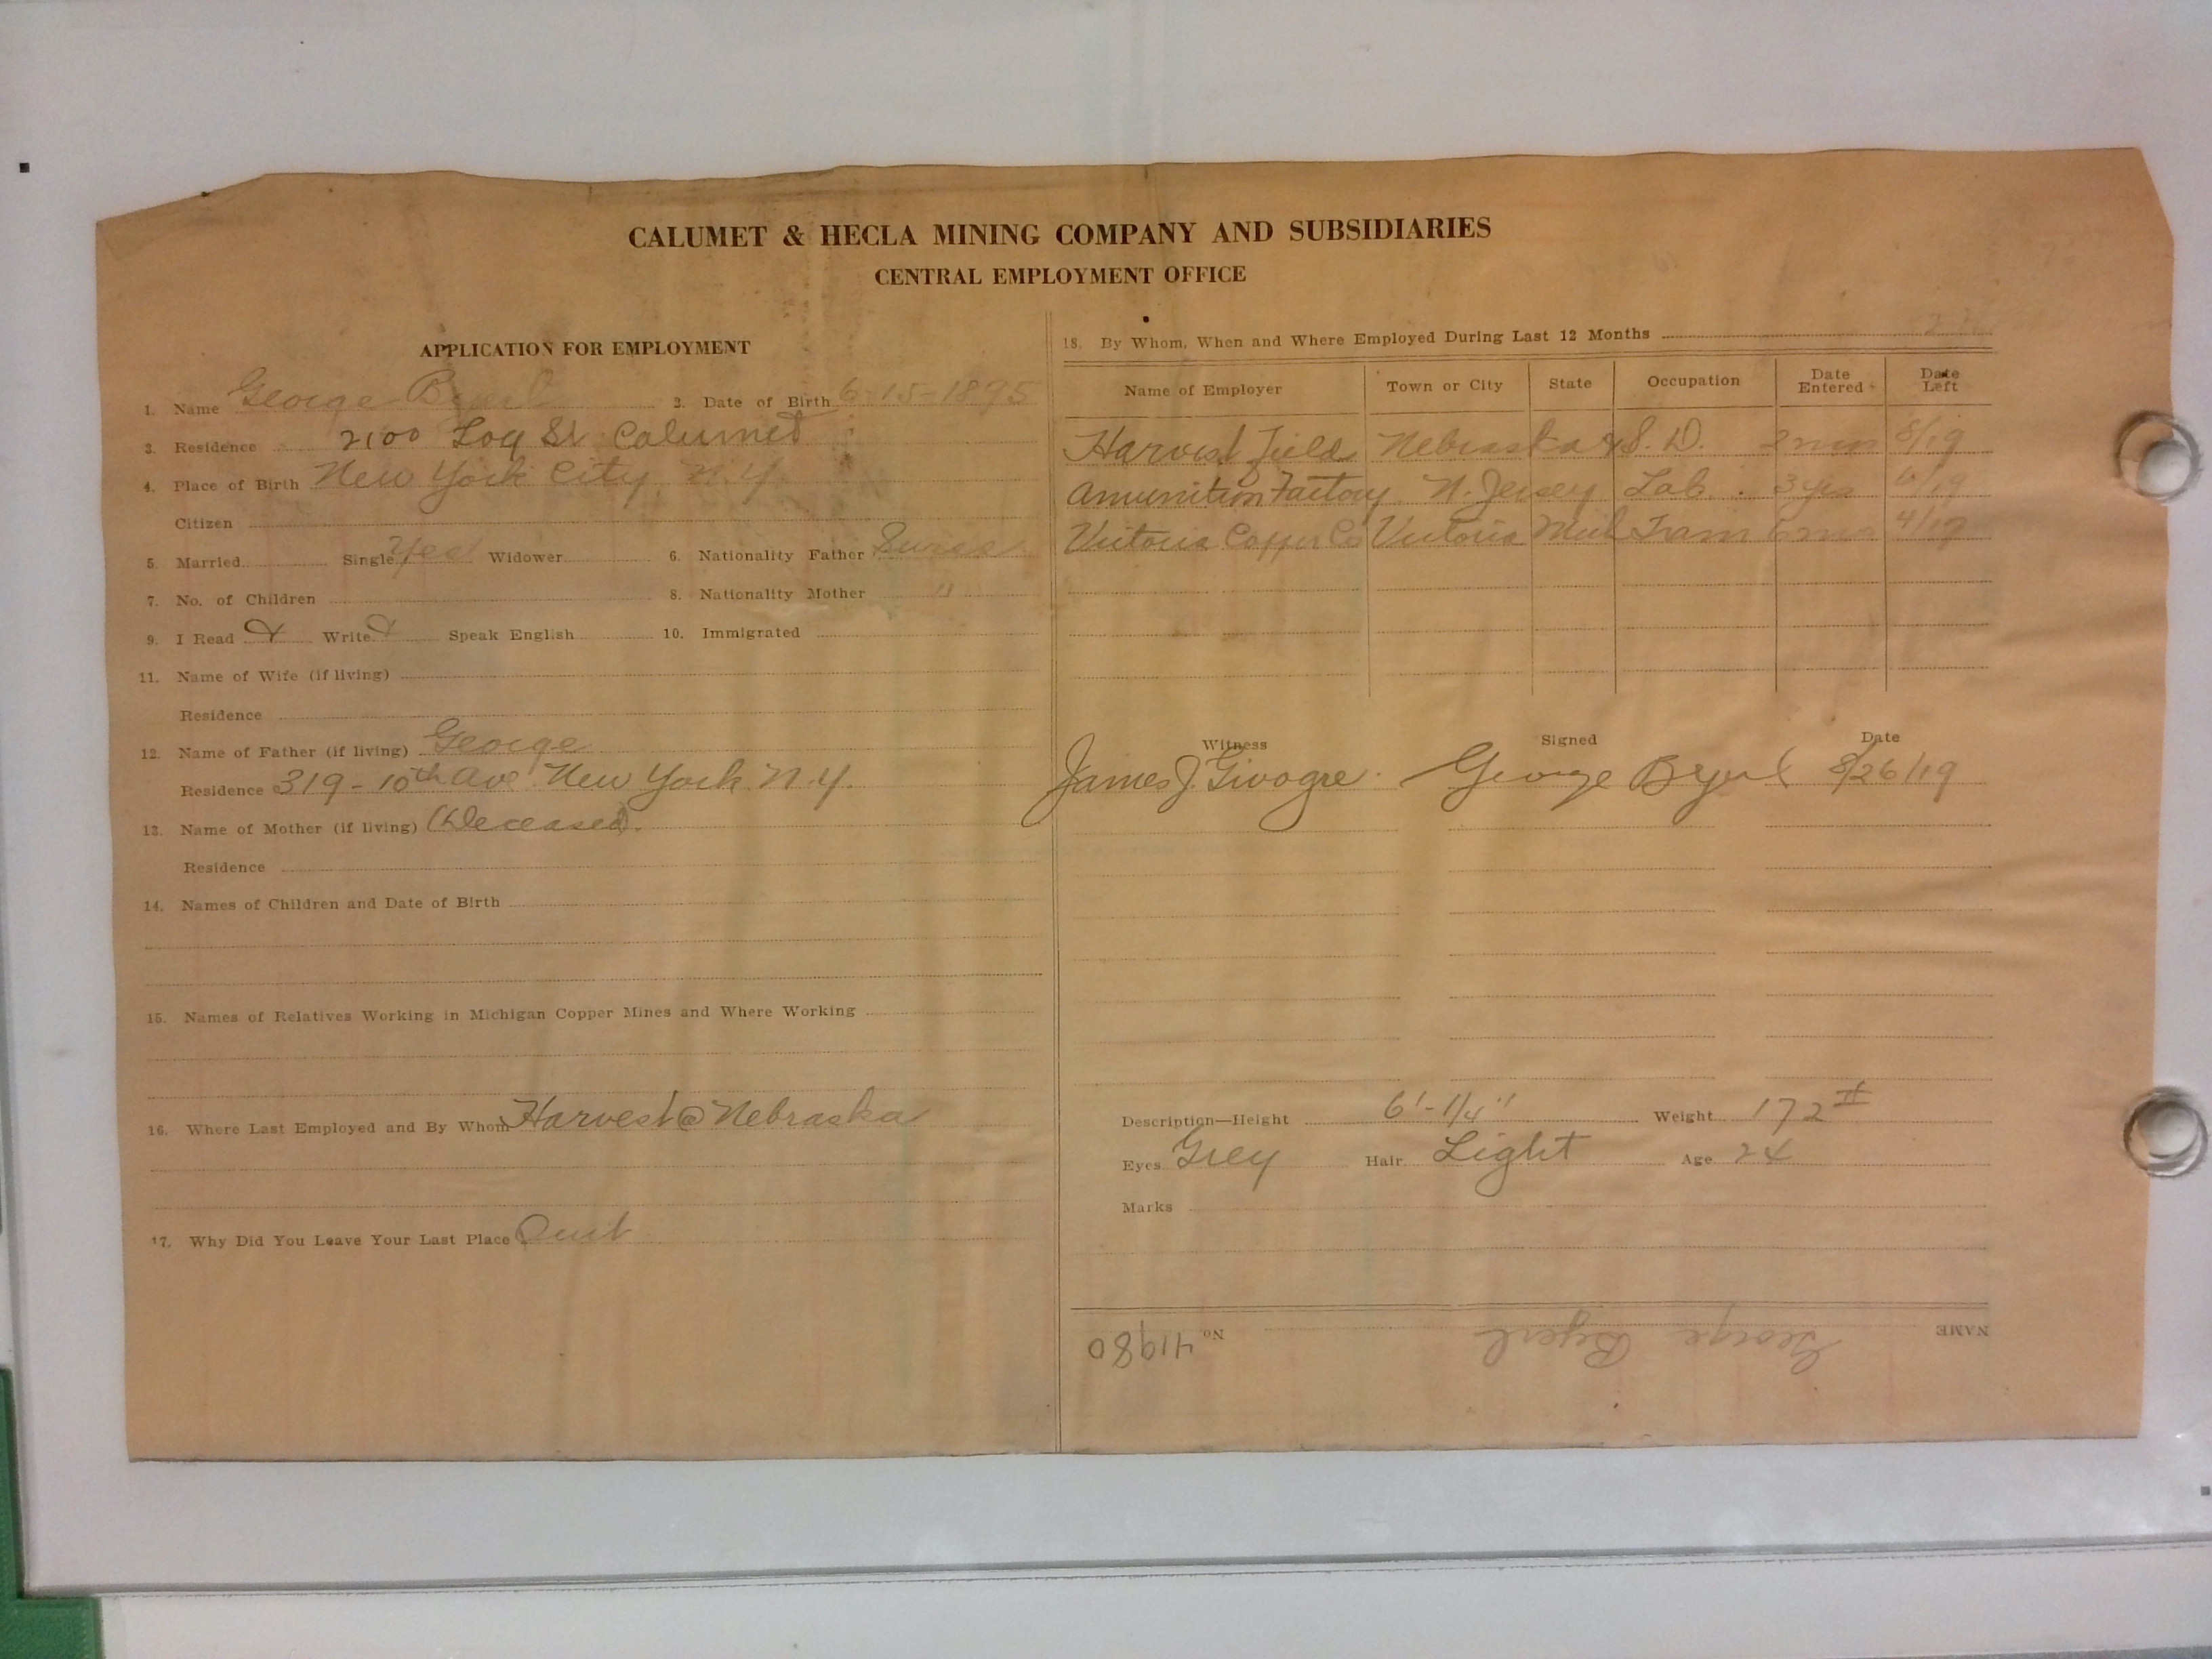 CALUMET & HECLA MINING COMPANY AND SUBSIDIARIES
CENTRAL EMPLOYMENT OFFICE
APPLICATION FOR EMPLOYMENT
1. Name George Byerl 2. Date of Birth 6-15-1895
3. Residence 2100 Log St Calumet
4. Place of Birth New York City, N.Y.
Citizen
5. Married Single Yes Widower 6. Nationality Father Swiss
7. No. of Children 8. Nationality Mother "
9. I Read Write Speak English 10. Immigrated
11. Name of Wife (if living)
Residence
12. Name of Father (if living) George
Residence 319 - 10th Ave. New York N.Y.
13. Name of Mother (if living) (Deceased).
Residence
14. Names of Children and Date of Birth
15. Names of Relatives Working in Michigan Copper Mines and Where Working
16. Where Last Employed and By Whom Harvest @ Nebraska
17. Why Did You Leave Your Last Place Quit
18. By Whom, When and Where Employed During Last 12 Months
Name of Employer Town or City State Occupation Date Entered Date Left
Harvest Field Nebraska & S. D. 2 mos 8/19
Amunition Factory N. Jersey Lab. 3 yrs 6/19
Victoria Copper Co Victoria Mich Tram 6 mos 4/19
Witness Signed Date
James J. George Byerl 8/26/19
Description—Height 6'-1/4" Weight 172 #
Eyes Grey Hair Light Age 24
Marks
NAME George Byerl No. 41980